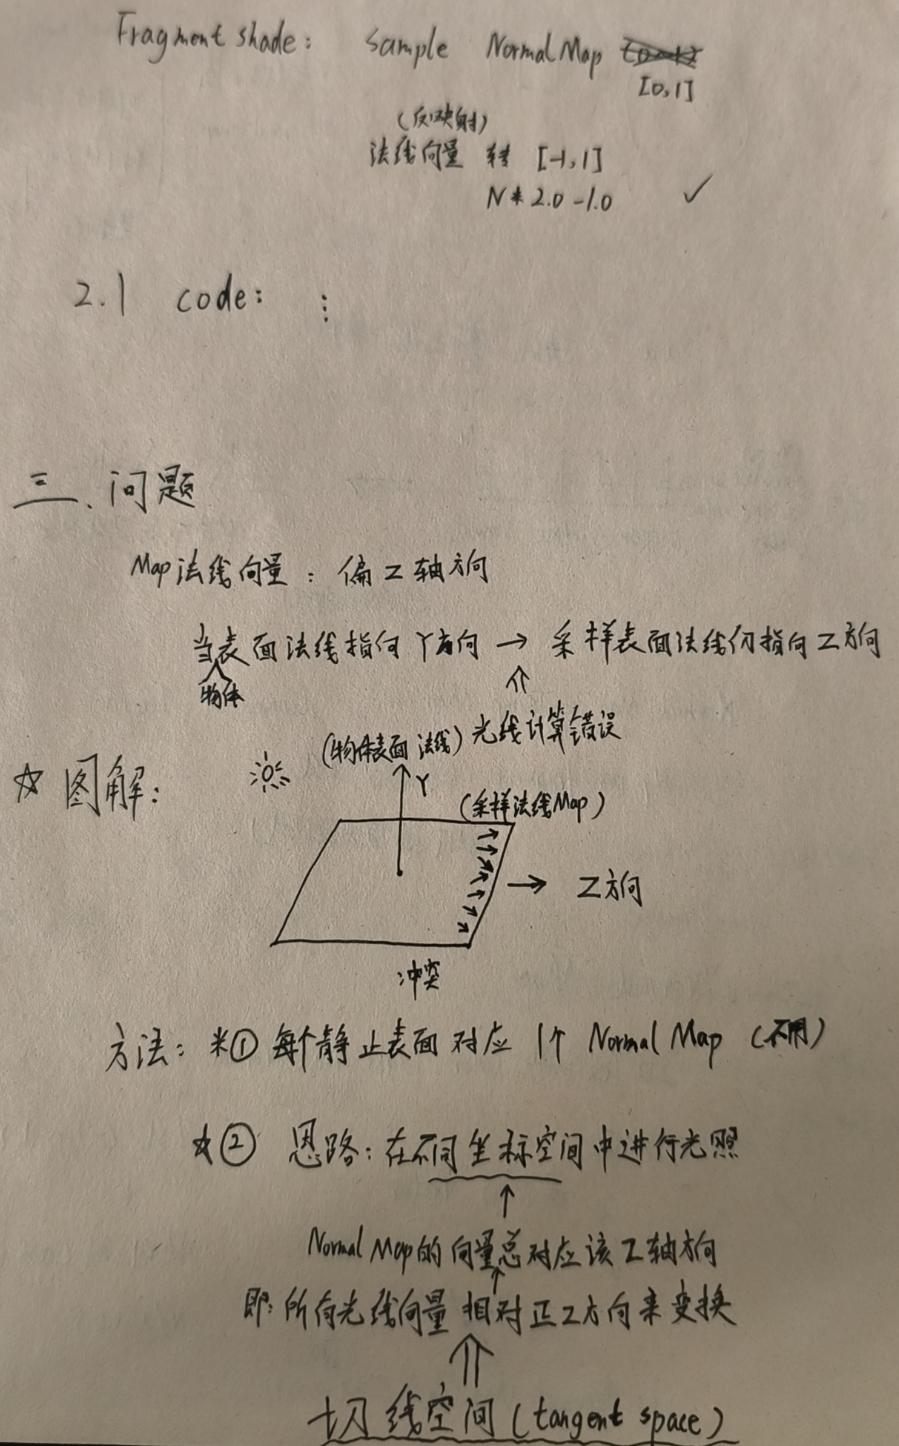 Fragment shade: Sample Normal Map
[0,1]
(反映射)
法线向量 转 [-1,1]
N * 2.0 -1.0 ✓
2.1 code: ⋮
三、问题
Map法线向量: 偏Z轴方向
当表面法线指向Y方向 → 采样表面法线仍指向Z方向
物体
光线计算错误
(物体表面法线)
☆ 图解:
Y
(采样法线Map)
→ Z方向
冲突
方法: ※① 每个静止表面对应1个 Normal Map (不用)
☆② 思路: 在不同坐标空间中进行光照
Normal Map的向量总对应该Z轴方向
即: 所有光线向量相对正Z方向来变换
切线空间(tangent space)